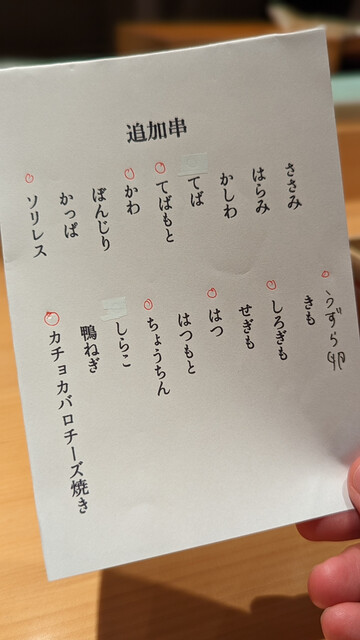 追加串
ささみ
はらみ
かしわ
てば
てばもと
かわ
ぼんじり
かっぱ
ソリレス
うずら卵
きも
しろぎも
せぎも
はつ
はつもと
ちょうちん
しらこ
鴨ねぎ
カチョカバロチーズ焼き